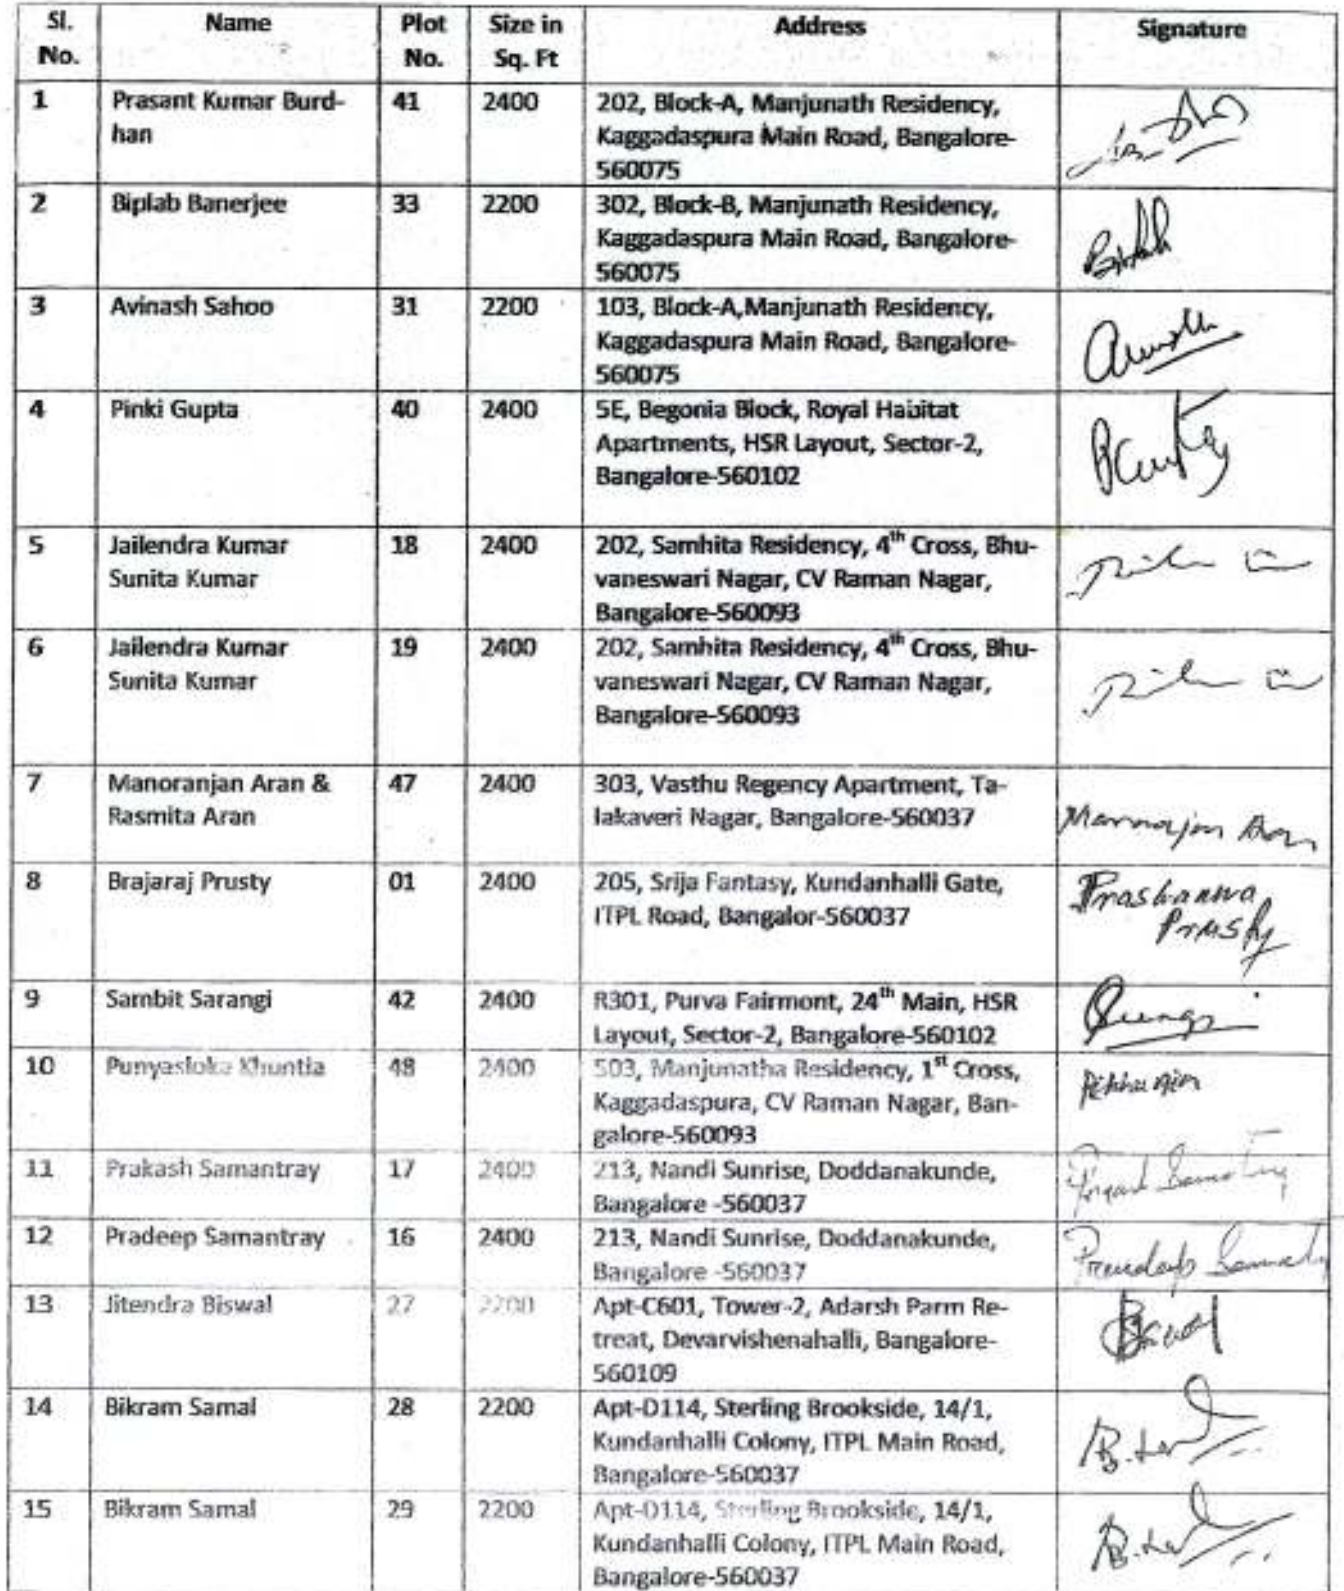 Sl. No. Name Plot No. Size in Sq. Ft Address Signature
1 Prasant Kumar Burd- 41 2400 202, Block-A, Manjunath Residency,
han Kaggadaspura Main Road, Bangalore-
560075
2 Biplab Banerjee 33 2200 302, Block-B, Manjunath Residency,
Kaggadaspura Main Road, Bangalore-
560075
3 Avinash Sahoo 31 2200 103, Block-A,Manjunath Residency,
Kaggadaspura Main Road, Bangalore-
560075
4 Pinki Gupta 40 2400 5E, Begonia Block, Royal Habitat
Apartments, HSR Layout, Sector-2,
Bangalore-560102
5 Jailendra Kumar 18 2400 202, Samhita Residency, 4th Cross, Bhu-
Sunita Kumar vaneswari Nagar, CV Raman Nagar,
Bangalore-560093
6 Jailendra Kumar 19 2400 202, Samhita Residency, 4th Cross, Bhu-
Sunita Kumar vaneswari Nagar, CV Raman Nagar,
Bangalore-560093
7 Manoranjan Aran & 47 2400 303, Vasthu Regency Apartment, Ta-
Rasmita Aran lakaveri Nagar, Bangalore-560037
8 Brajaraj Prusty 01 2400 205, Srija Fantasy, Kundanhalli Gate,
ITPL Road, Bangalor-560037
Prusty
9 Sambit Sarangi 42 2400 R301, Purva Fairmont, 24th Main, HSR
Layout, Sector-2, Bangalore-560102
10 Punyasloka Khuntia 48 2400 503, Manjunatha Residency, 1st Cross,
Kaggadaspura, CV Raman Nagar, Ban-
galore-560093
11 Prakash Samantray 17 2400 213, Nandi Sunrise, Doddanakunde,
Bangalore -560037
12 Pradeep Samantray 16 2400 213, Nandi Sunrise, Doddanakunde,
Bangalore -560037
13 Jitendra Biswal 27 2200 Apt-C601, Tower-2, Adarsh Parm Re-
treat, Devarvishenahalli, Bangalore-
560109
14 Bikram Samal 28 2200 Apt-D114, Sterling Brookside, 14/1,
Kundanhalli Colony, ITPL Main Road,
Bangalore-560037
15 Bikram Samal 29 2200 Apt-D114, Sterling Brookside, 14/1,
Kundanhalli Colony, ITPL Main Road,
Bangalore-560037